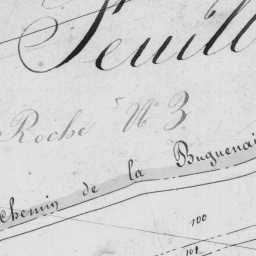 Feuill
Roche N° 3
Chemin de la Buguenai
100
101